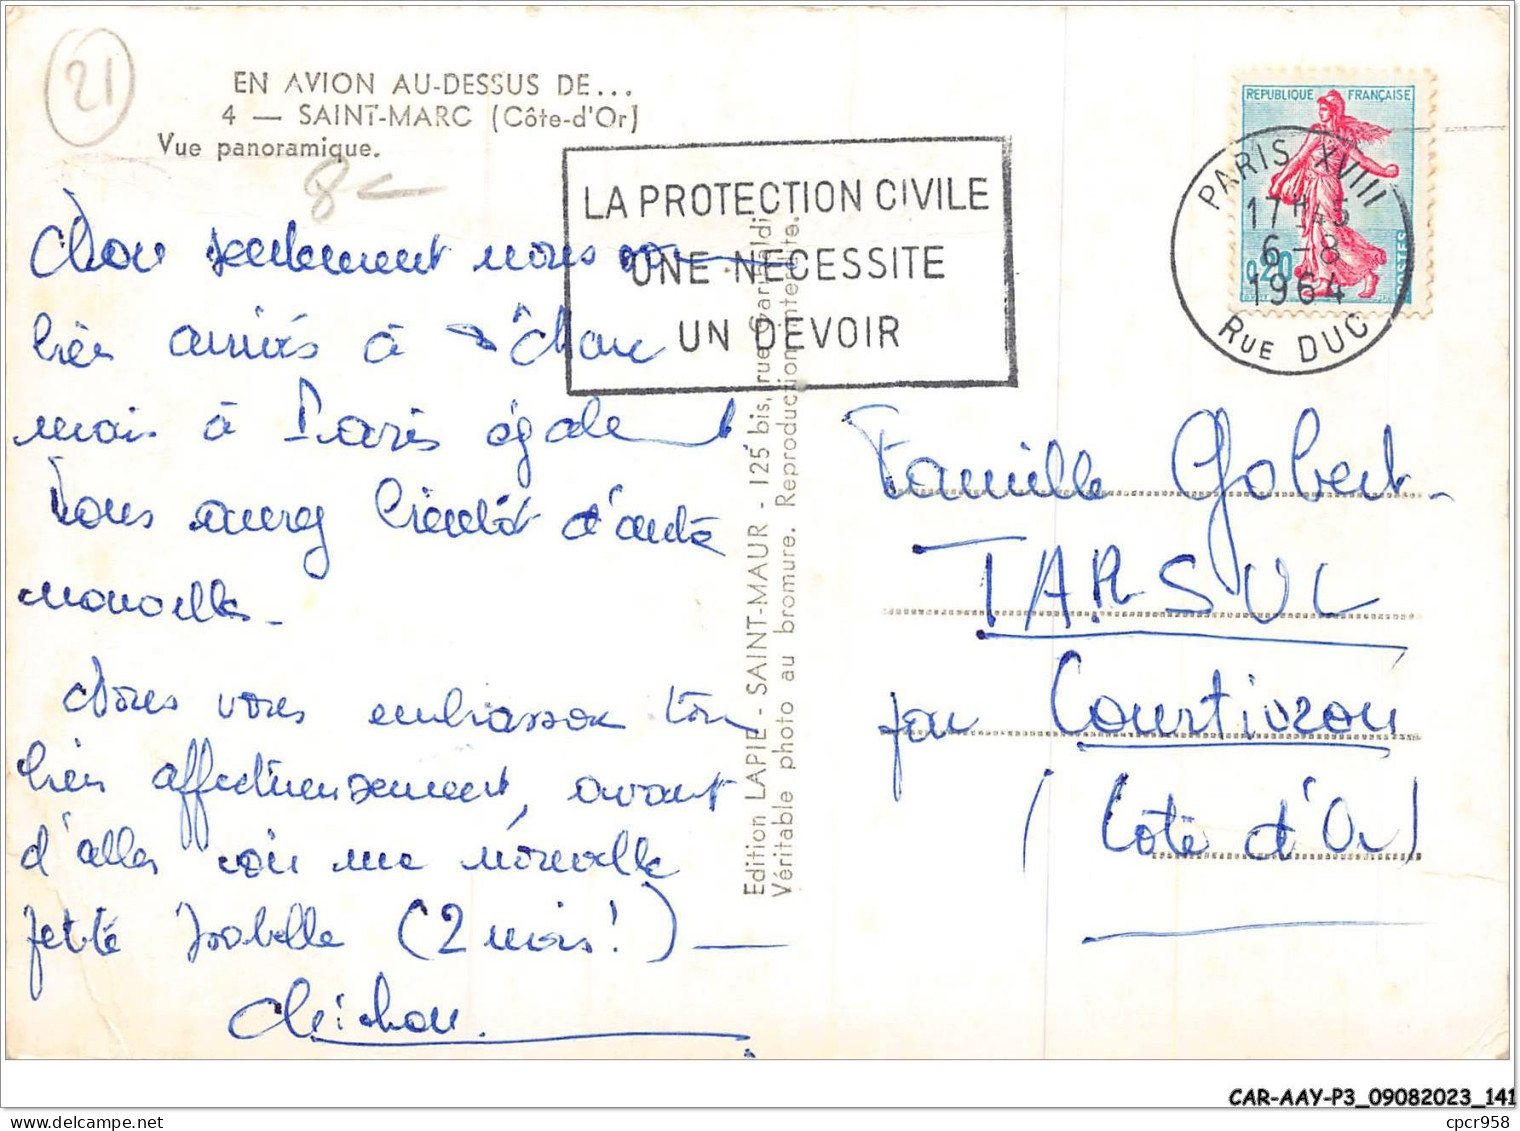 21
EN AVION AU-DESSUS DE...
4 — SAINT-MARC (Côte-d'Or)
Vue panoramique.
8
LA PROTECTION CIVILE
UNE NECESSITE
UN DEVOIR
REPUBLIQUE FRANÇAISE
0,20
POSTES
PARIS XVIII
17H45
6-8
1964
RUE DUC
seulement nous
bien arrivés à
mais à Paris égale
Vous aurez bientôt d'autre
nouvelle.
vous embrasson ton
bien affectueusement, avant
d'aller voir ma nouvelle
petite Isabelle (2 mois!)
Chichou.
Edition LAPIE - SAINT-MAUR - 125 bis, rue Garibaldi
Véritable photo au bromure. Reproduction interdite.
Famille Gobert
TARSUL
par Courtivron
(Côte d'Or)
CAR-AAY-P3_09082023_141
cpcr958